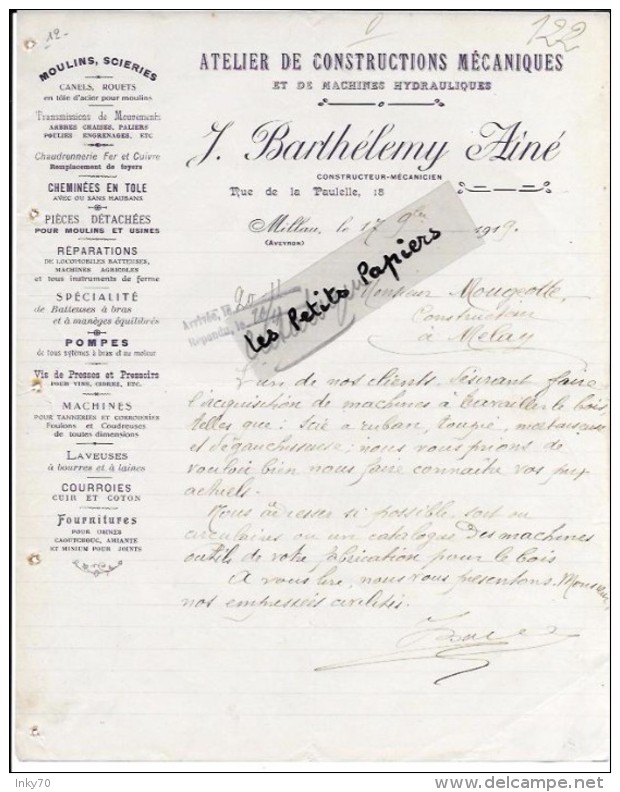 12-
122
MOULINS, SCIERIES
CANELS, ROUETS
en tôle d'acier pour moulins
Transmissions de Mouvements
ARBRES CHAISES, PALIERS
POULIES ENGRENAGES, ETC
Chaudronnerie Fer et Cuivre
Remplacement de foyers
CHEMINÉES EN TOLE
AVEC OU SANS HAUBANS
PIÈCES DÉTACHÉES
POUR MOULINS ET USINES
RÉPARATIONS
DE LOCOMOBILES BATTEUSES,
MACHINES AGRICOLES
et tous instruments de ferme
SPÉCIALITÉ
de Batteuses à bras
et à manèges équilibrés
POMPES
de tous systèmes à bras et au moteur
Vis de Presses et Pressoirs
POUR VINS, CIDRES, ETC.
MACHINES
POUR TANNERIES ET CORROIERIES
Foulons et Coudreuses
de toutes dimensions
LAVEUSES
à bourres et à laines
COURROIES
CUIR ET COTON
Fournitures
POUR USINES
CAOUTCHOUC, AMIANTE
ET MINIUM POUR JOINTS
ATELIER DE CONSTRUCTIONS MÉCANIQUES
ET DE MACHINES HYDRAULIQUES
J. Barthélemy Aîné
CONSTRUCTEUR-MÉCANICIEN
Rue de la Paulelle, 18
Millau, le 17 9bre 1919.
(AVEYRON)
Arrivée, le 20
Répondu, le
Les Petits Papiers
Monsieur Mougeotte,
Constructeur
à Melay
L'un de nos clients désirant faire
l'acquisition de machines à travailler le bois
telles que : scie à ruban, toupie, mortaiseuse
et dégauchisseuse ; nous vous prions de
vouloir bien nous faire connaître vos prix
actuels.
Nous adresser si possible, soit une
circulaire ou un catalogue des machines
outils de votre fabrication pour le bois
A vous lire, nous vous présentons, Monsieur,
nos empressées civilités.
Inky70
delcampe.net